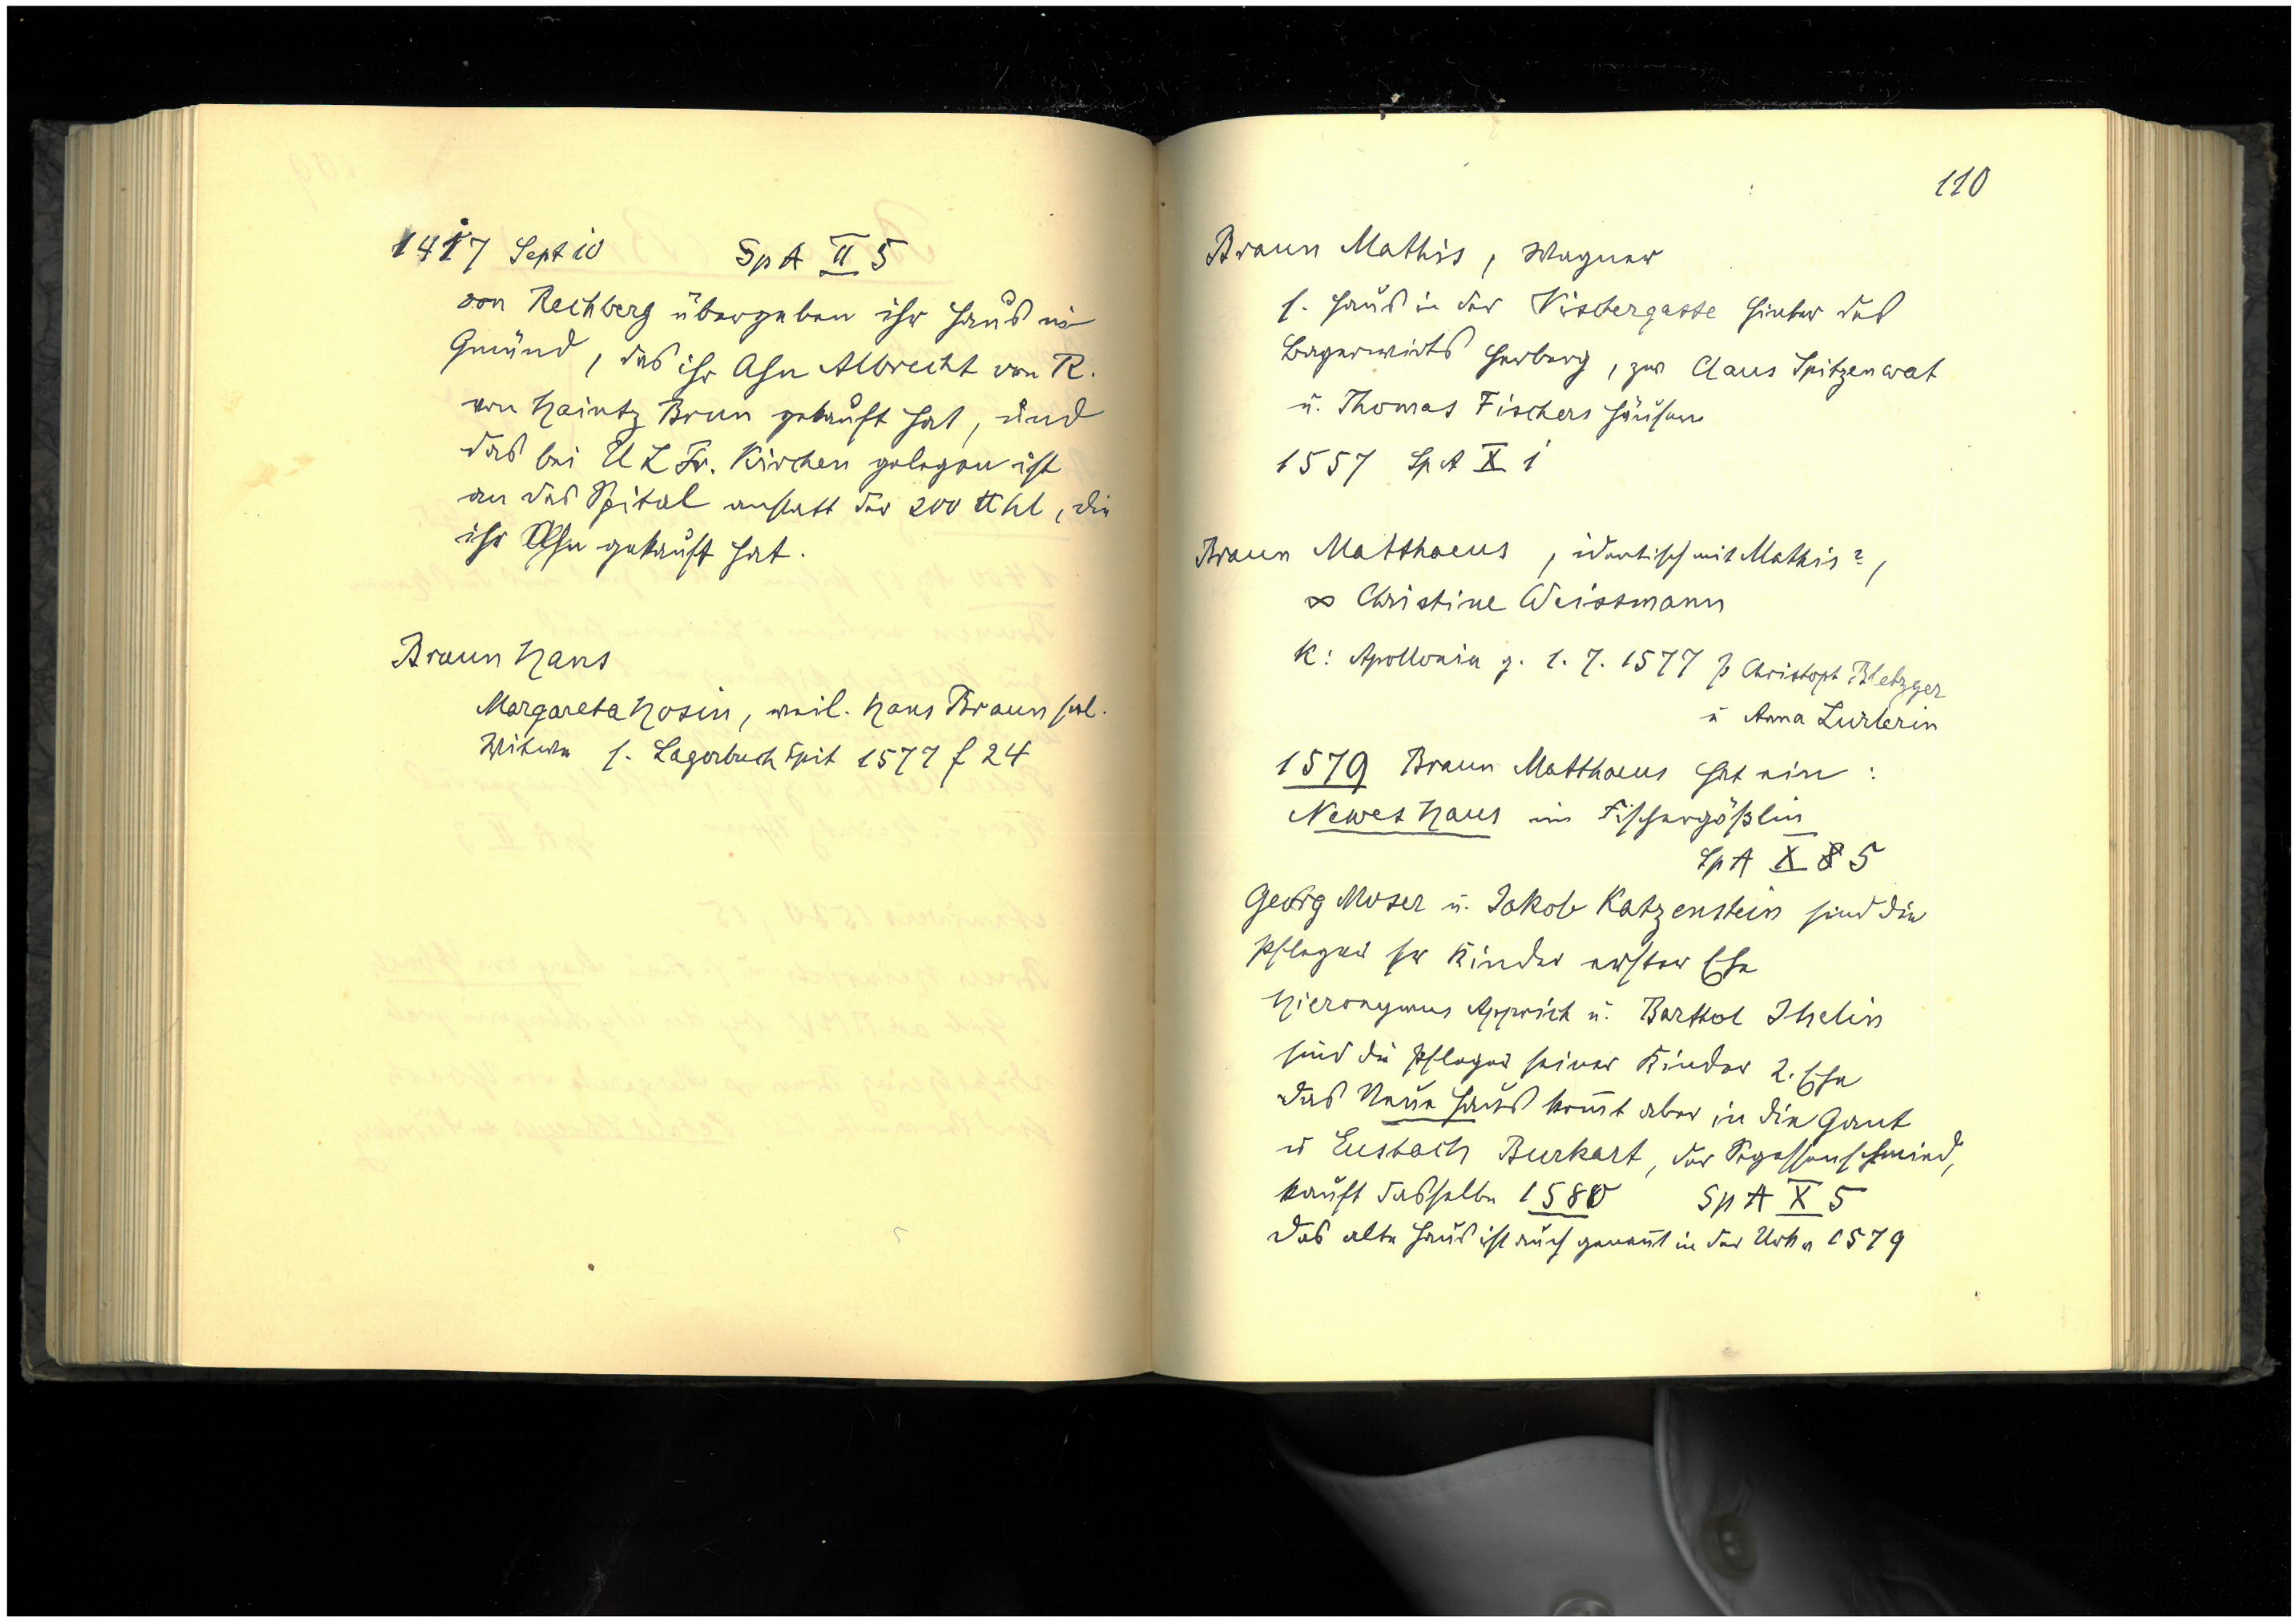 1417 Sept 10 Sp A II 5
von Rechberg übergeben ihr Haus in
Gmünd, das ihr Ahn Albrecht von R.
von Haintz Brun gekauft hat, und
das bei U L Fr. Kirchen gelegen ist
an das Spital anstatt der 200 ℔ hl, die
ihr Ahn gekauft hat.
Braun Hans
Margareta Hosin, weil. Hans Braun sel.
Witwe s. Lagerbuch Spit 1577 f 24
110
Braun Mathis, Wagner
s. Haus in der Vischergasse hinter des
Bayerwirts Herberg, zw Claus Spitzenwat
u. Thomas Fischers Häusern
1557 Sp A X 1
Braun Matthaeus, identisch mit Mathis?,
∞ Christine Weissmann
K: Apollonia g. 1. 7. 1577 p Christoph Bletzger
u Anna Zurlerin
1579 Braun Matthaeus hat ein:
Newes Haus im Fischergäßlin
Sp A X 5
Georg Moser u. Jakob Katzenstein sind die
Pfleger sr Kinder erster Ehe
Hieronymus Apprich u. Barthol Ihelin
sind die Pfleger seiner Kinder 2. Ehe
das Neue Haus komt aber in die Gant
u Eustach Burkart, der Segessenschmied,
kauft dasselbe 1580 Sp A X 5
das alte Haus ist auch genant in der Urk v 1579